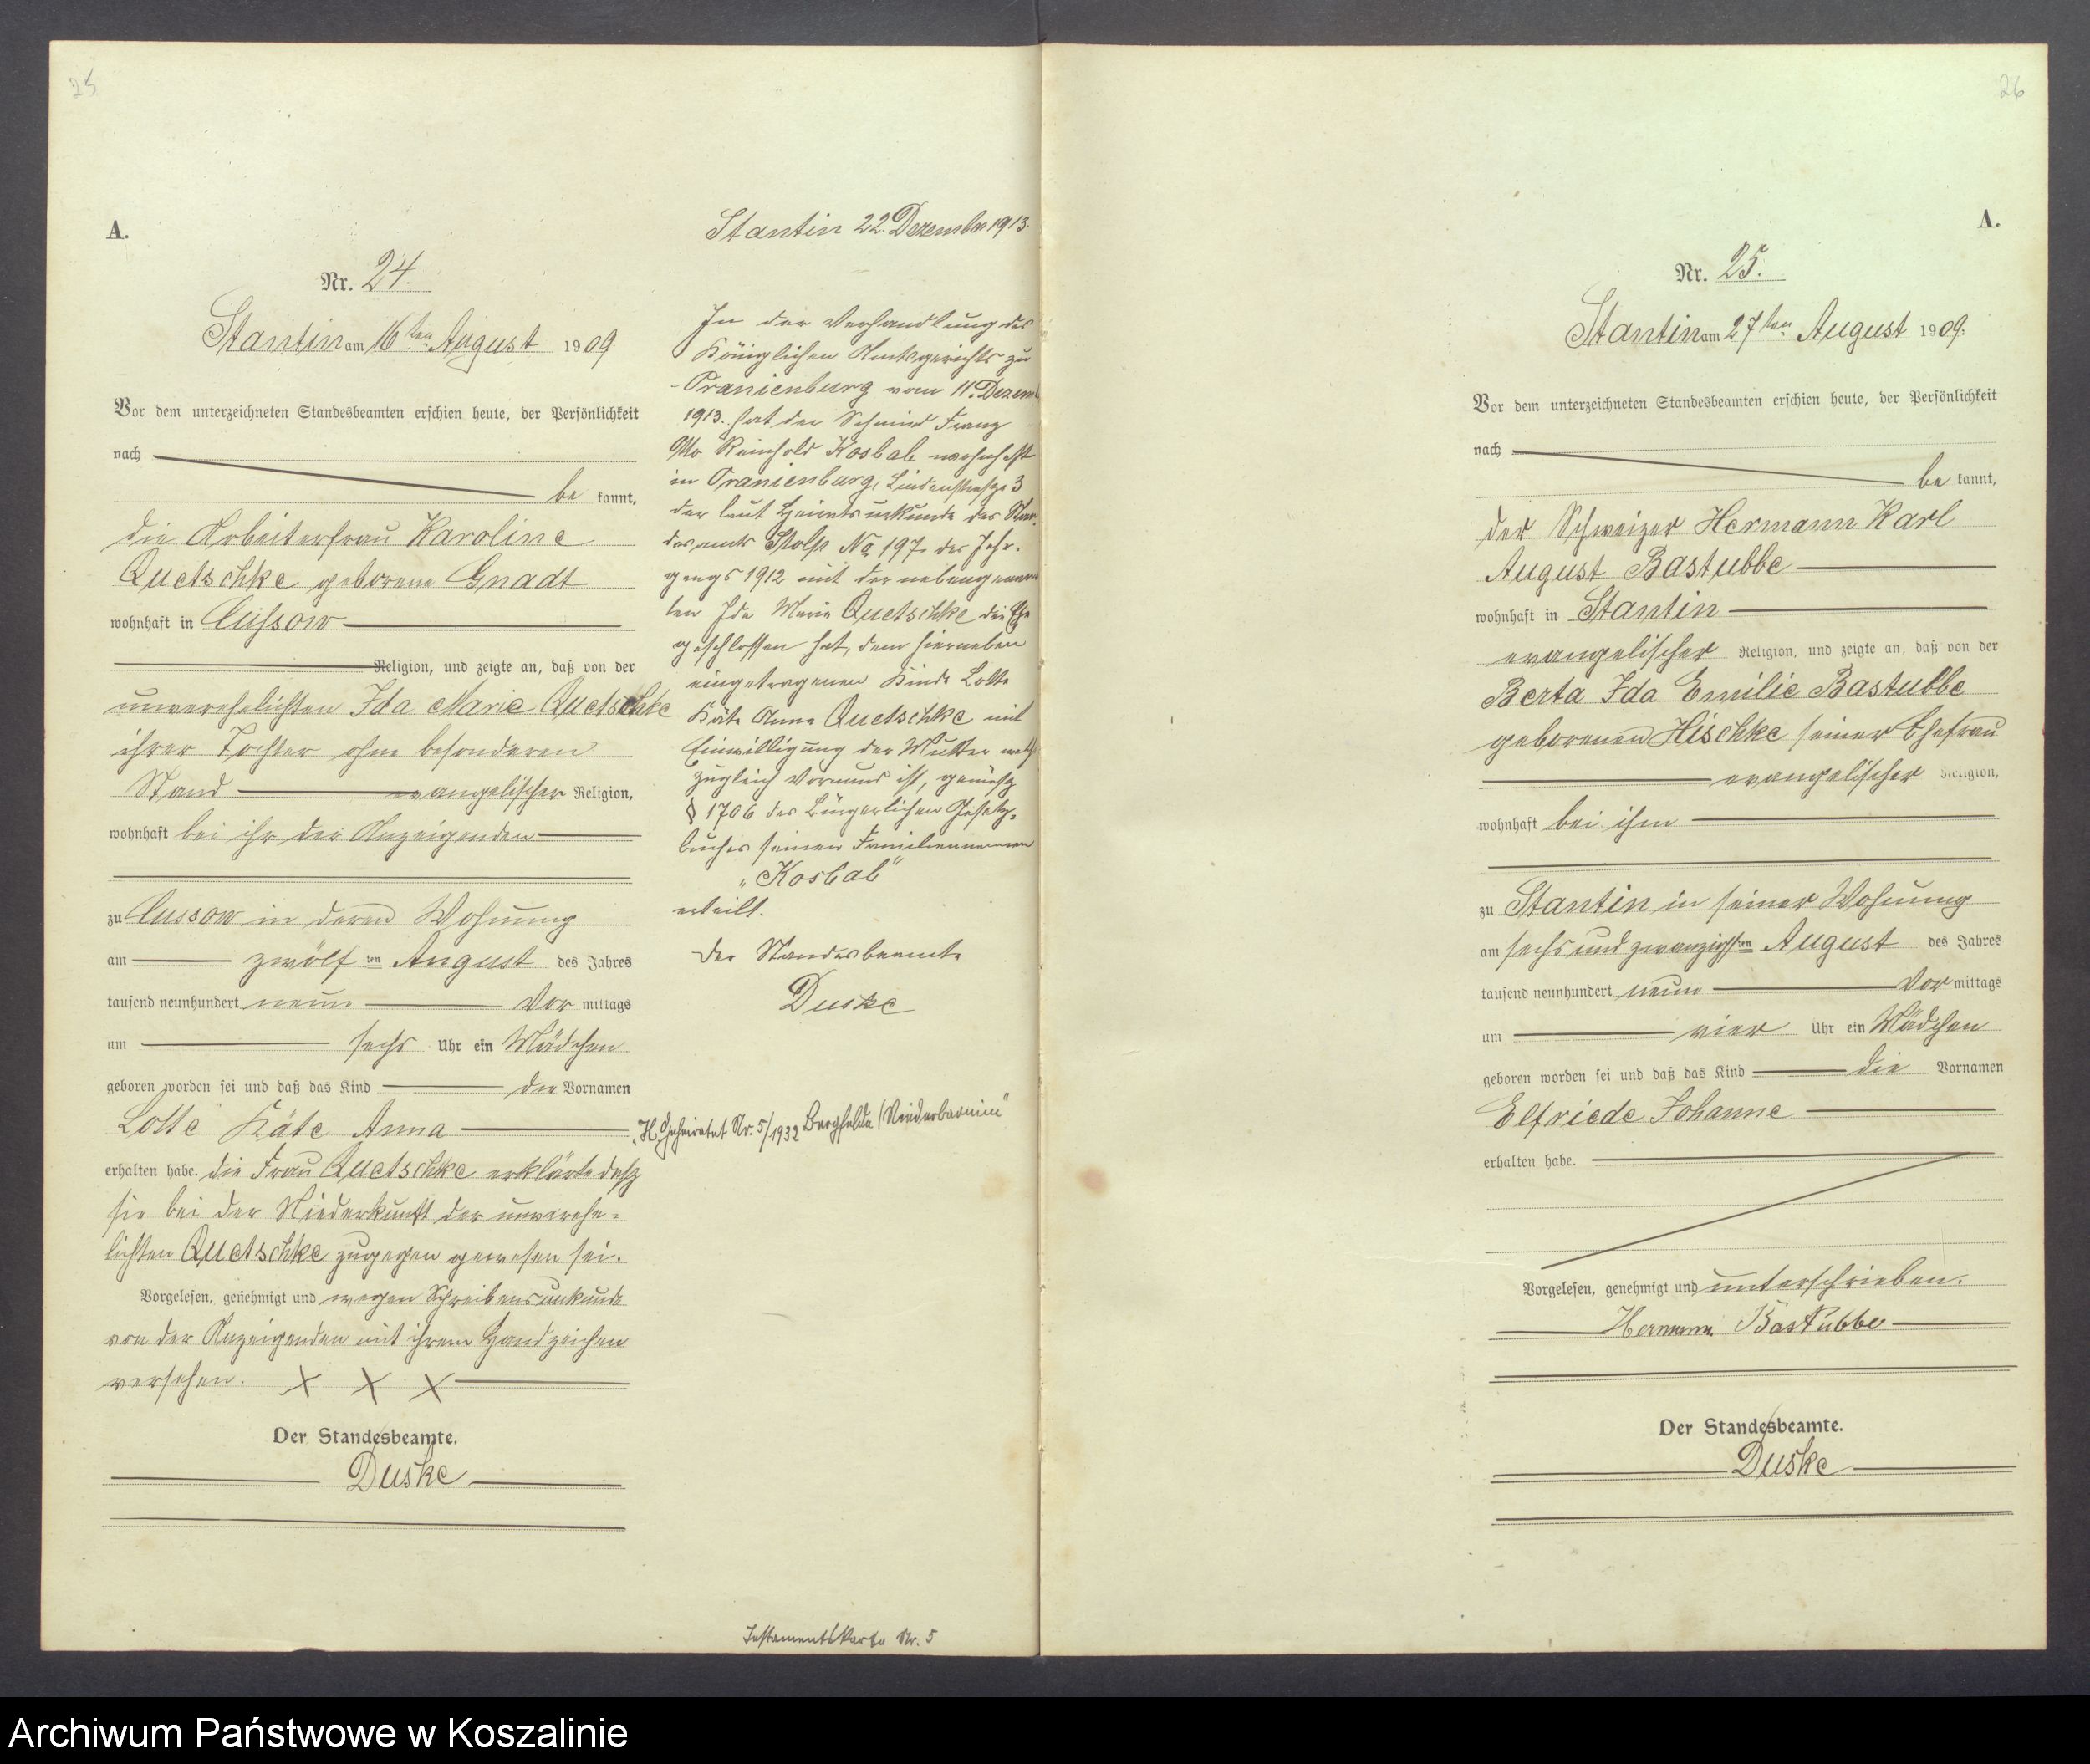 25
A.
Nr. 24.
Stantin am 16ten August 1909.
Vor dem unterzeichneten Standesbeamten erschien heute, der Persönlichkeit
nach
be kannt,
die Arbeiterfrau Karoline
Quetschke geborene Gnadt
wohnhaft in Cussow
Religion, und zeigte an, daß von der
unverehelichten Ida Marie Quetschke
ihrer Tochter ohne besonderen
Stand evangelischer Religion,
wohnhaft bei ihr der Anzeigenden
zu Cussow in deren Wohnung
am zwölf ten August des Jahres
tausend neunhundert neun Vor mittags
um sechs Uhr ein Mädchen
geboren worden sei und daß das Kind die Vornamen
Lotte Käte Anna
erhalten habe. die Frau Quetschke erklärte daß
sie bei der Niederkunft der unverehe-
lichten Quetschke zugegen gewesen sei.
Vorgelesen, genehmigt und wegen Schreibensunkunde
von der Anzeigenden mit ihrem Handzeichen
versehen. X X X
Der Standesbeamte.
Duske
Stantin 22. Dezember 1913.
In der Verhandlung des
Königlichen Amtsgerichts zu
Oranienburg vom 11. Dezem
1913. hat der Schmied Franz
Otto Reinhold Kosbab wohnhaft
in Oranienburg, Lindenstraße 3
der laut Heiratsurkunde des Stan-
desamts Stolp No 197. des Jahr-
gangs 1912 mit der nebengenann
ten Ida Marie Quetschke die Ehe
geschlossen hat, dem hierneben
eingetragenen Kinde Lotte
Käte Anna Quetschke mit
Einwilligung der Mutter welch
zugleich Vormund ist, gemäß
§ 1706 des Bürgerlichen Gesetz-
buches seinen Familiennamen
"Kosbab"
erteilt.
Der Standesbeamte
Duske
"H. Geheiratet Nr. 5/1932 Bergfelde (Niederbarnim"
Testamentskarte Nr. 5
26
A.
Nr. 25.
Stantin am 27ten August 1909.
Vor dem unterzeichneten Standesbeamten erschien heute, der Persönlichkeit
nach
be kannt,
der Schweizer Hermann Karl
August Bastubbe
wohnhaft in Stantin
evangelischer Religion, und zeigte an, daß von der
Berta Ida Emilie Bastubbe
geborenen Hischke seiner Ehefrau
evangelischer Religion,
wohnhaft bei ihm
zu Stantin in seiner Wohnung
am sechs und zwanzigsten August des Jahres
tausend neunhundert neun Vor mittags
um vier Uhr ein Mädchen
geboren worden sei und daß das Kind die Vornamen
Elfriede Johanne
erhalten habe.
Vorgelesen, genehmigt und unterschrieben.
Hermann Bastubbe
Der Standesbeamte.
Duske
Archiwum Państwowe w Koszalinie